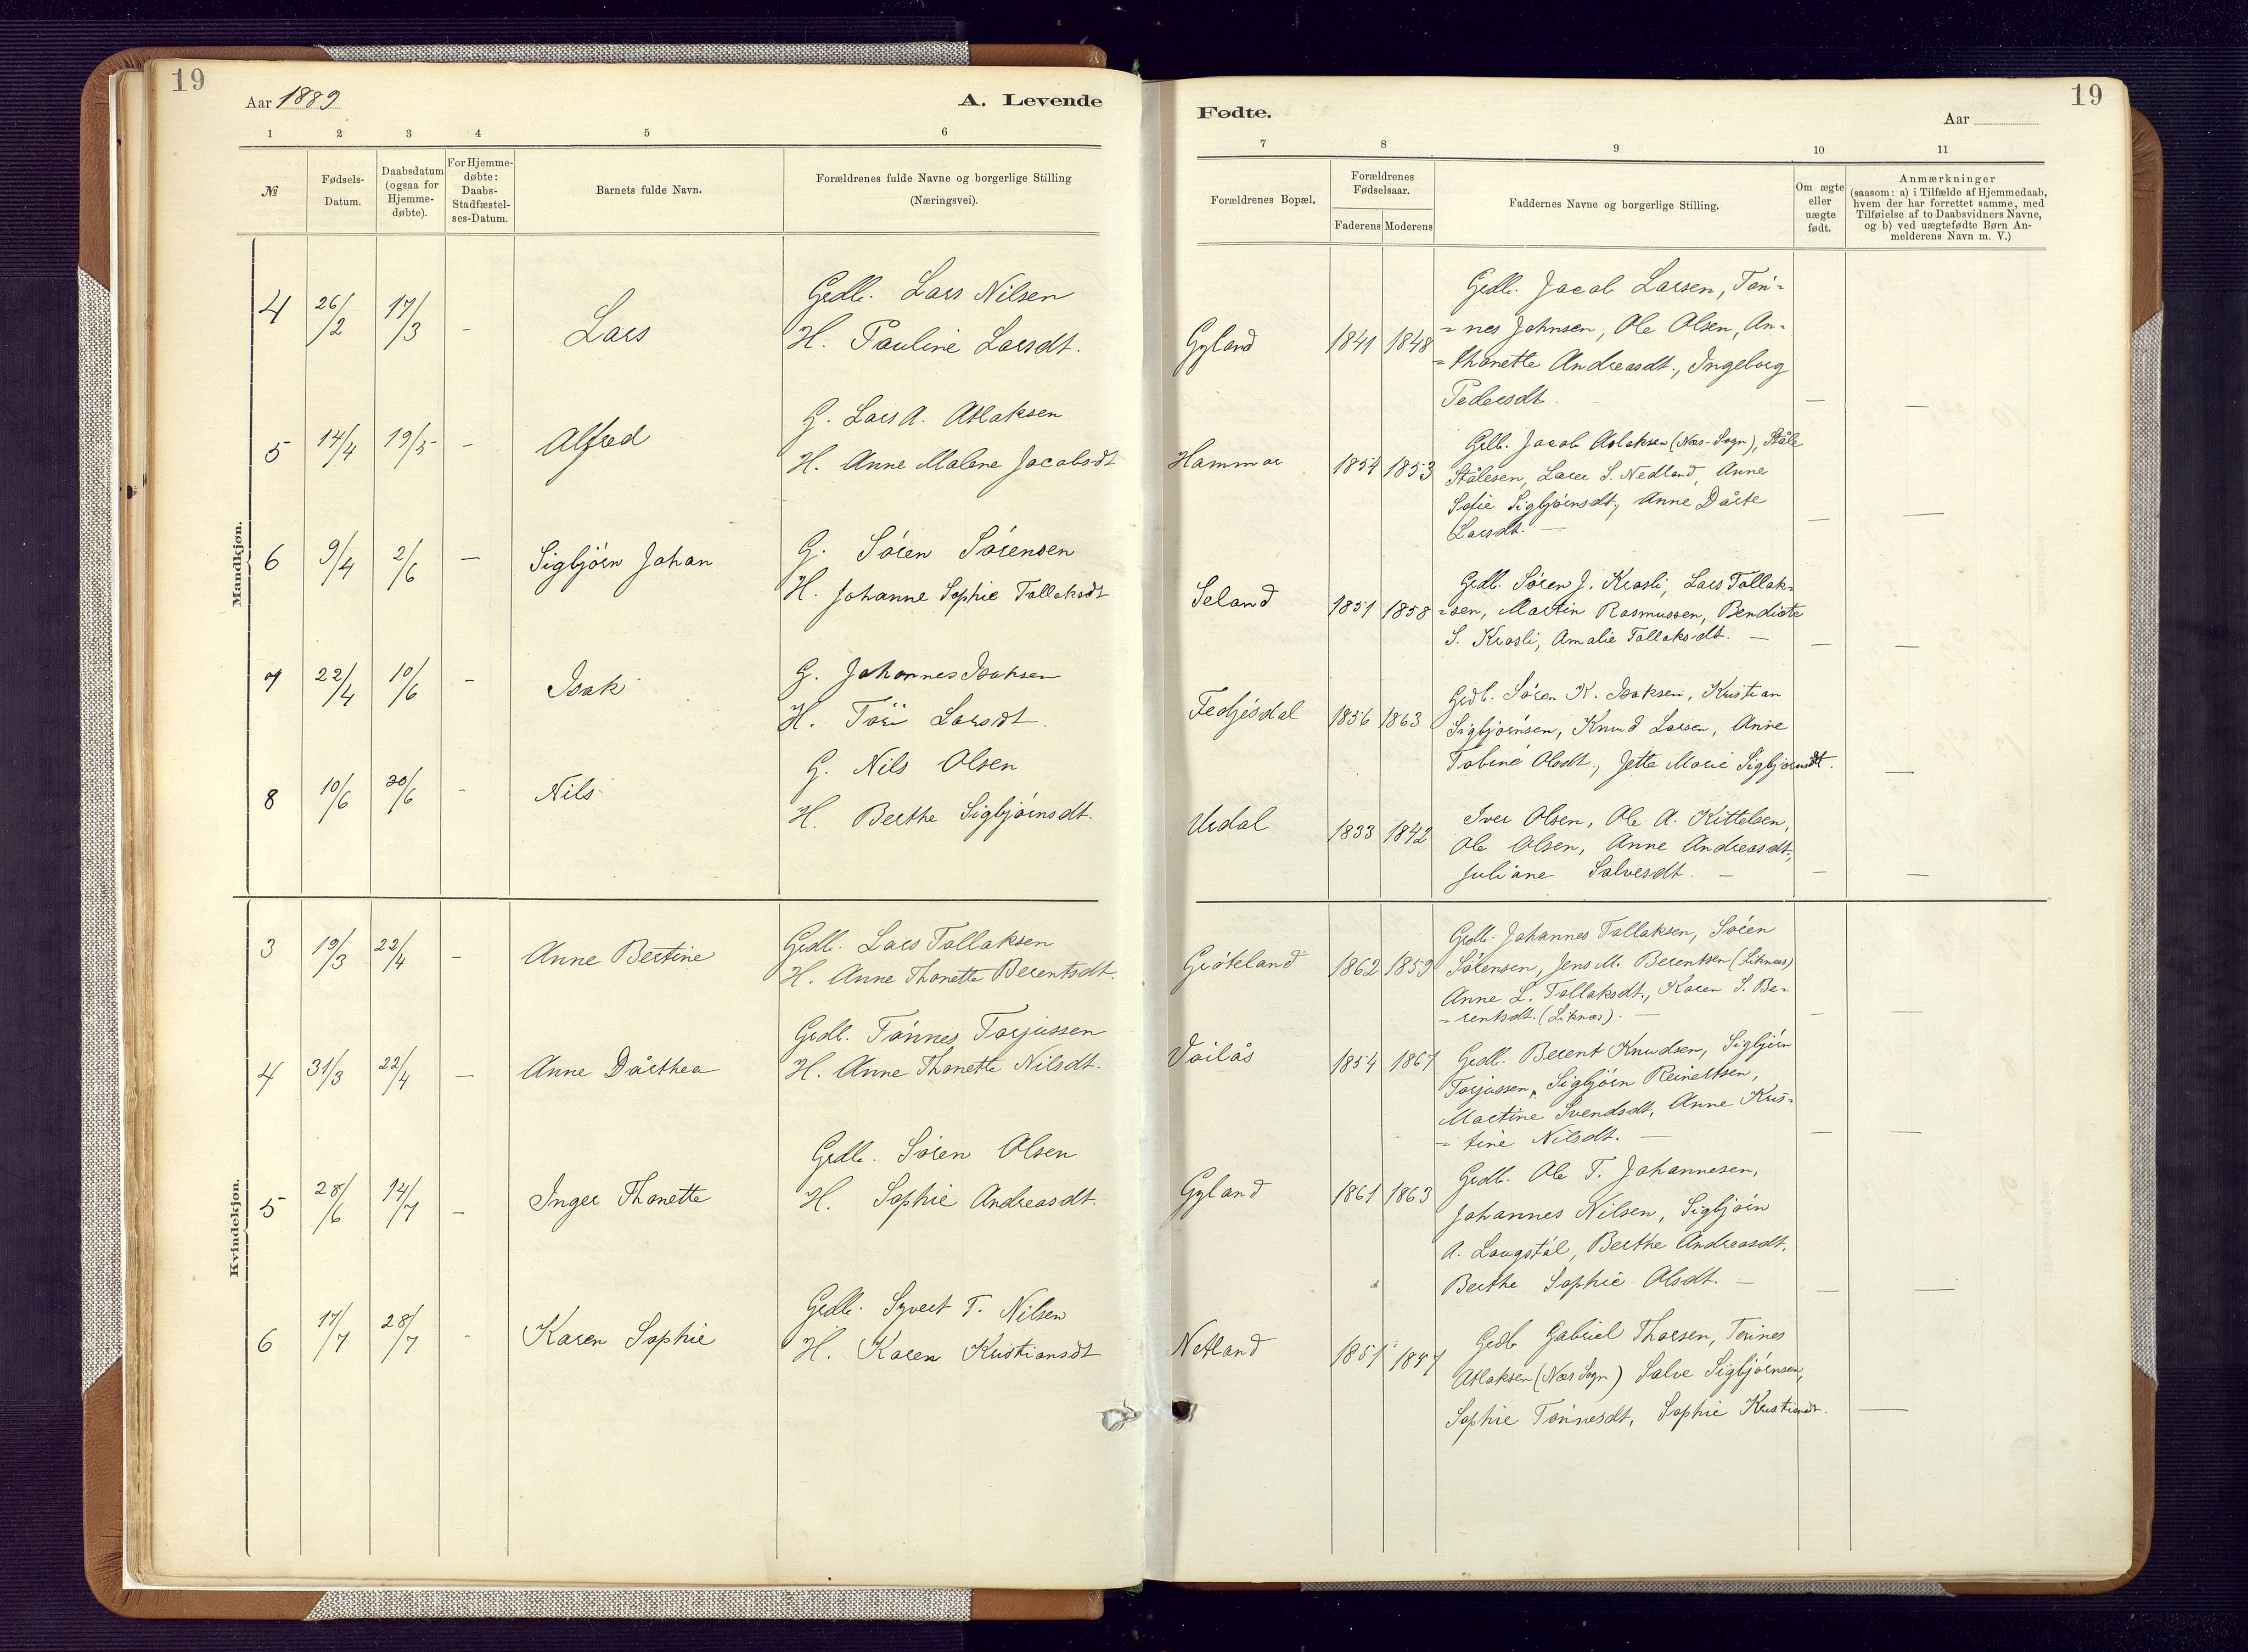 19
Aar 1889
A. Levende
1 2 3 4 5 6
№
Fødsels-
Datum.
Daabsdatum
(ogsaa for
Hjemme-
døbte).
For Hjemme-
døbte:
Daabs-
Stadfæstel-
ses-Datum.
Barnets fulde Navn.
Forældrenes fulde Navne og borgerlige Stilling
(Næringsvei).
Mandkjøn.
4 26/2 17/3 - Lars
Grdb. Lars Nilsen
H. Pauline Larsdt.
5 14/4 19/5 - Alfred
G. Lars A. Atlaksen
H. Anne Malene Jacobsdt
6 9/4 2/6 - Sigbjørn Johan
G. Søren Sørensen
H. Johanne Sophie Tollaksdt
7 22/4 10/6 - Isak
G. Johannes Isaksen
H. Tøri Larsdt.
8 10/6 30/6 - Nils
G. Nils Olsen
H. Berthe Sigbjørnsdt.
Kvindekjøn.
3 19/3 22/4 - Anne Bertine
Grdb. Lars Tollaksen
H. Anne Thonette Berentsdt.
4 31/3 22/4 - Anne Dårthea
Grdb. Tønnes Torjussen
H. Anne Thonette Nilsdt.
5 28/6 14/7 - Inger Thonette
Grdb. Søren Olsen
H. Sophie Andreasdt.
6 17/7 28/7 - Karen Sophie
Grdb. Syvert T. Nilsen
H. Karen Kristiansdt
19
Fødte.
Aar
7 8 9 10 11
Forældrenes Bopæl.
Forældrenes
Fødselsaar.
Faderens Moderens
Faddernes Navne og borgerlige Stilling.
Om ægte
eller
uægte
født.
Anmærkninger
(saasom: a) i Tilfælde af Hjemmedaab,
hvem der har forrettet samme, med
Tilføielse af to Daabsvidners Navne,
og b) ved uægtefødte Børn An-
melderens Navn m. V.)
Gyland 1841 1848
Grdb. Jacob Larsen, Tøn-
=nes Johnsen, Ole Olsen, An-
=thonette Andreasdt., Ingeborg
Pedersdt. — —
Hammar 1854 1853
Grdb. Jacob Aslaksen (Nes-Sogn), Ståle
Stålesen, Lars S. Nedland, Anne
Sofie Sigbjørnsdt., Anne Dårte
Larsdt. — — —
Seland 1851 1858
Grdb. Søren J. Krosli, Lars Tollak-
=sen, Martin Rasmussen, Bendicte
S. Krosli, Amalie Tollaksdt. — — —
Fedjesdal 1856 1863
Grdb. Søren K. Isaksen, Kristian
Sigbjørnsen, Knud Larsen, Anne
Tobine Olsdt., Jette Marie Sigbjørnsdt. —
Urdal 1833 1842
Iver Olsen, Ole A. Kittelsen,
Ole Olsen, Anne Andreasdt.,
Juliane Salvesdt. — — —
Grøteland 1862 1859
Grdb. Johannes Tollaksen, Søren
Sørensen, Jens M. Berentsen (Liknes)
Anne L. Tollaksdt., Karen S. Be-
=rentsdt. (Liknes). — — —
Voilås 1854 1867
Grdb. Berent Knudsen, Sigbjørn
Torjussen, Sigbjørn Reinertsen,
Martine Svendsdt, Anne Kris-
=tine Nilsdt. — — —
Gyland 1861 1863
Grdb. Ole T. Johannesen,
Johannes Nilsen, Sigbjørn
A. Laugstøl, Berthe Andreasdt,
Berthe Sophie Olsdt. — — —
Netland 1851 1857
Grdb Gabriel Thorsen, Tønnes
Atlaksen (Nes Sogn) Salve Sigbjørnsen,
Sophie Tønnesdt, Sophie Kristiansdt. —